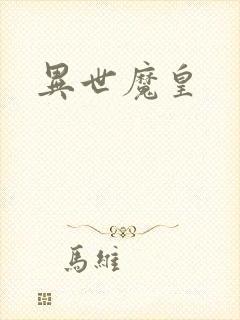 異世魔皇
馬維